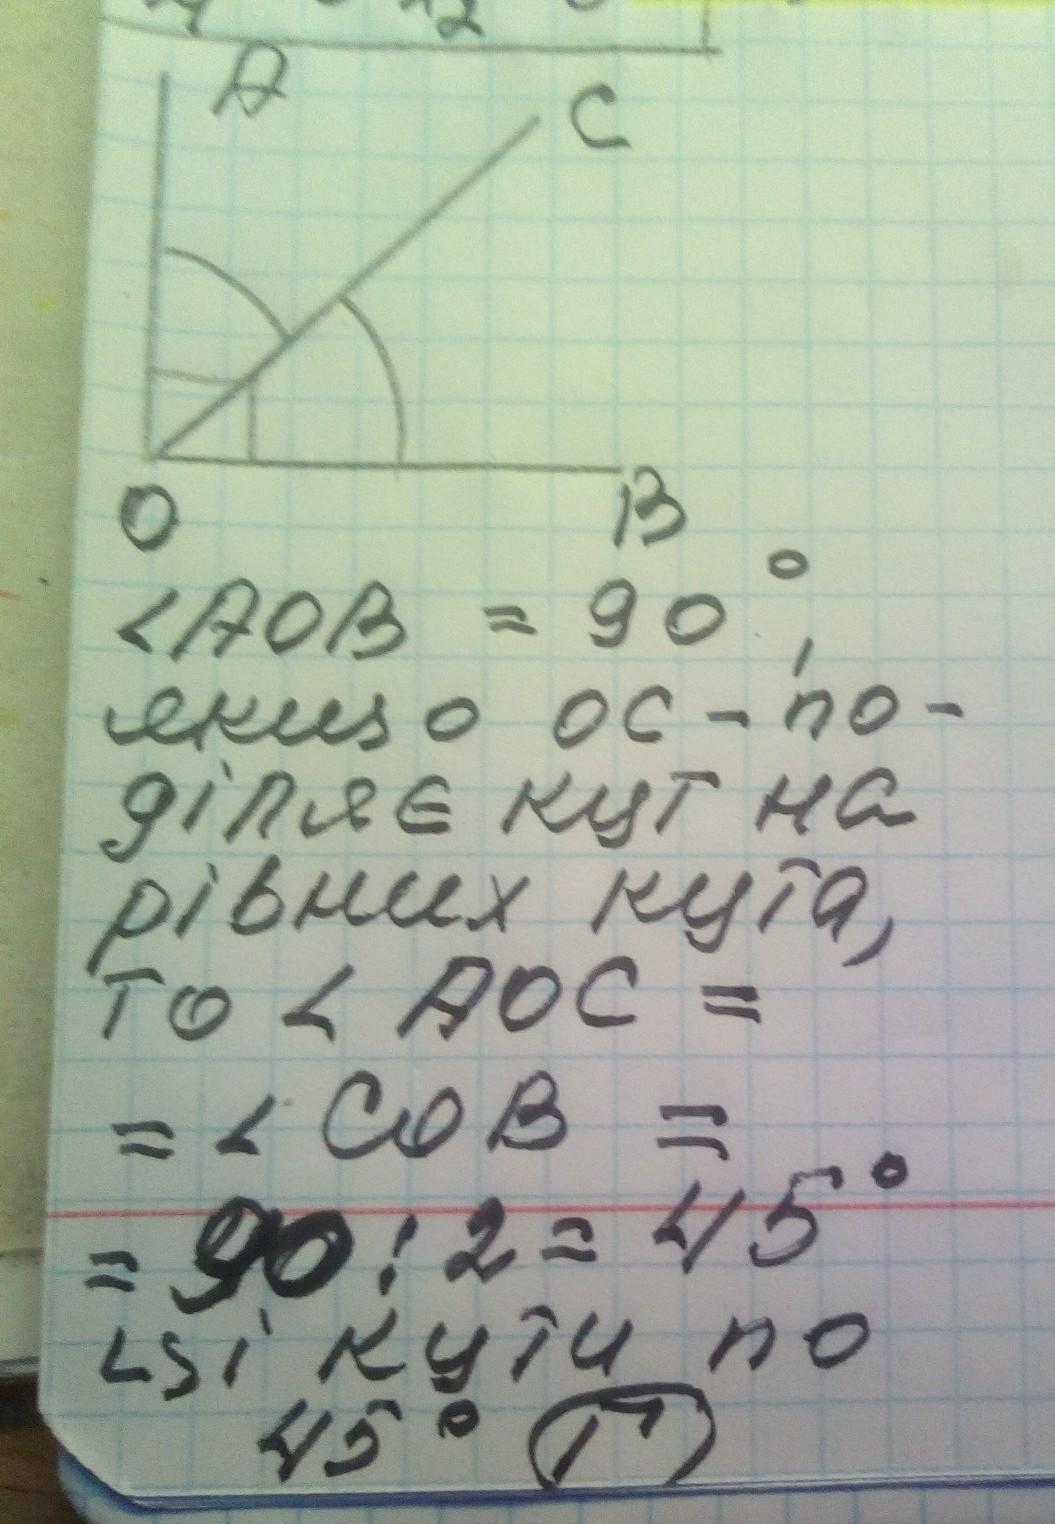 A
C
O
B
∠AOB = 90°,
якщо OC - по-
діляє кут на
рівних кута,
то ∠ AOC =
= ∠ COB =
= 90 : 2 = 45°
ці кути по
45° Г